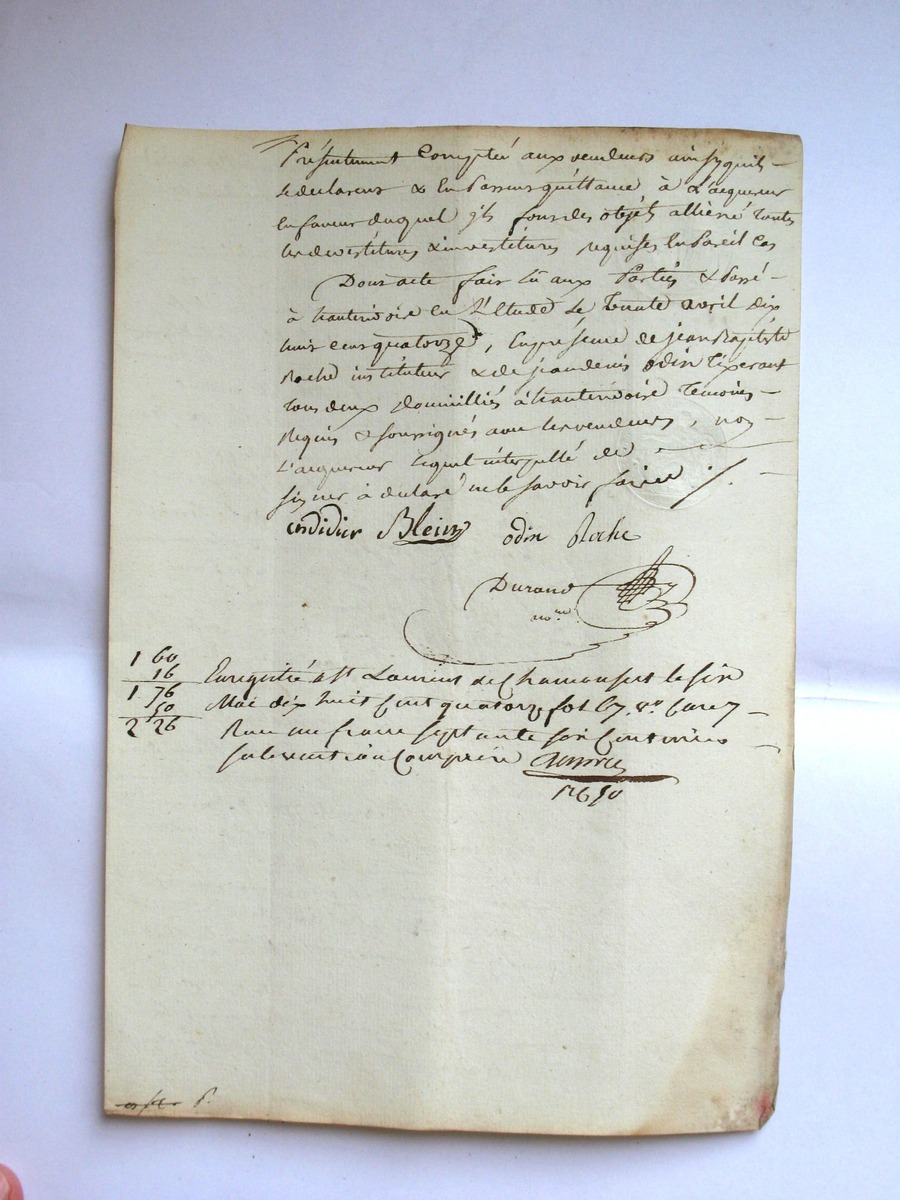 Présentement Comptée aux vendeurs ainsy quils
le déclarent & En Passent quittance à L'acquereur
En faveur duquel ils font des objets alliéné Toutes
les devestitures & investitures requises En Pareil Cas
Dont acte fait lu aux Parties & Passé
à hauterivoire En L'Etude Le Trente avril dix
huit cent quatorze, En présence de jean Baptiste
Roche instituteur & de jean denis odin Tixerant
Tous deux Domiciliés à hauterivoire Temoins
Requis & soussignés avec les vendeurs, non
L'acquereur Lequel interpellé de
signer à déclaré ne le savoir faire
Blein odin Roche
Durand
nore.
1 60
16
1 76
50
2 26
Enregistré à St Laurent de Chamousset le six
Mai dix huit Cent quatorze fol 67 vo Case 7
Reçu un franc septante six Centimes
subvention Comprise